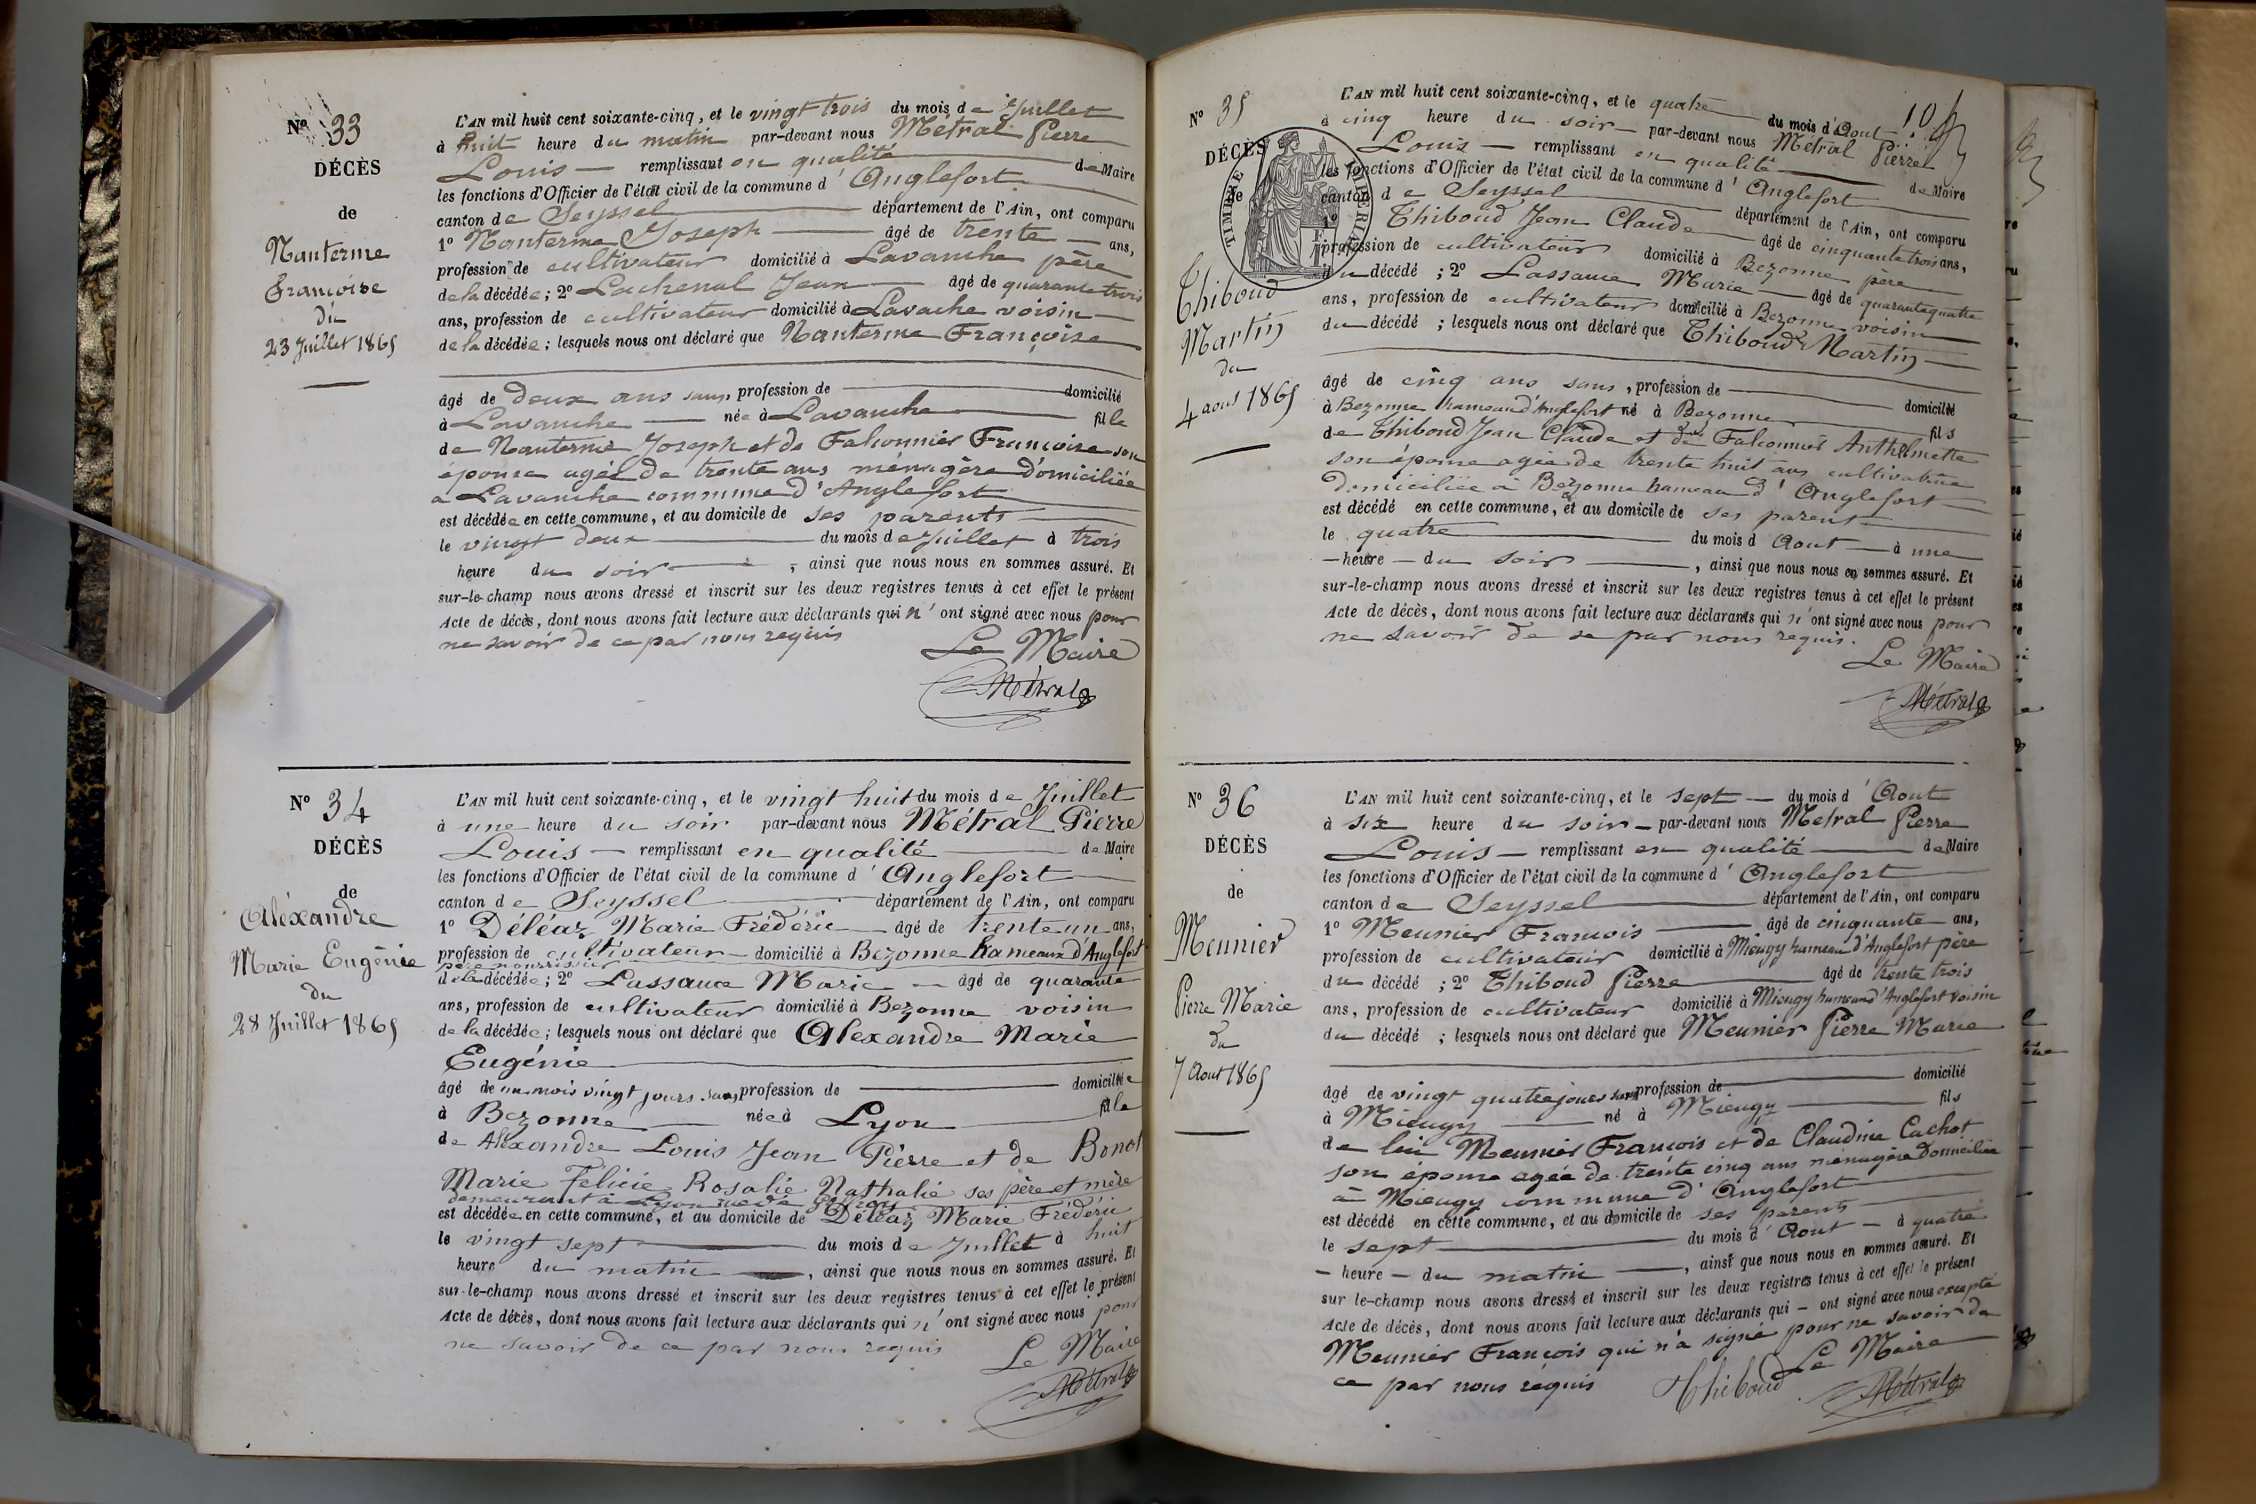 Nº 33
DÉCÈS
de
Nanterme
Françoise
du
23 Juillet 1865
L'AN mil huit cent soixante-cinq, et le vingt trois du mois de Juillet
à huit heure du matin par-devant nous Métral Pierre
Louis — remplissant en qualité de Maire
les fonctions d'Officier de l'état civil de la commune d'Anglefort
canton de Seyssel département de l'Ain, ont comparu
1º Nanterme Joseph âgé de trente ans,
profession de cultivateur domicilié à Lavanche père
de la décédée; 2º Lachenal Jean âgé de quarante trois
ans, profession de cultivateur domicilié à Lavanche voisin
de la décédée; lesquels nous ont déclaré que Nanterme Françoise
âgé de deux ans sans, profession de domicilié
à Lavanche née à Lavanche fille
de Nanterme Joseph et de Falconnier Françoise son
épouse agée de trente ans ménagère domiciliée
à Lavanche commune d'Anglefort
est décédée en cette commune, et au domicile de ses parents
le vingt deux du mois de Juillet à trois
heure du soir, ainsi que nous nous en sommes assuré. Et
sur-le-champ nous avons dressé et inscrit sur les deux registres tenus à cet effet le présent
Acte de décès, dont nous avons fait lecture aux déclarants qui n'ont signé avec nous pour
ne savoir de ce par nous requis
Le Maire
Métral
Nº 34
DÉCÈS
de
Aléxandre
Marie Eugénie
du
28 Juillet 1865
L'AN mil huit cent soixante-cinq, et le vingt huit du mois de Juillet
à une heure du soir par-devant nous Métral Pierre
Louis — remplissant en qualité de Maire
les fonctions d'Officier de l'état civil de la commune d'Anglefort
canton de Seyssel département de l'Ain, ont comparu
1º Déléaz Marie Frédéric âgé de trente un ans,
profession de cultivateur domicilié à Bezonne hameaux d'Anglefort
père nourrissier
de la décédée; 2º Lassauce Marie âgé de quarante
ans, profession de cultivateur domicilié à Bezonne voisin
de la décédée; lesquels nous ont déclaré que Alexandre Marie
Eugénie
âgé de un mois vingt jours sans, profession de domiciliée
à Bezonne née à Lyon fille
de Aléxandre Louis Jean Pierre et de Bonot
Marie Félicie Rosalie Nathalie ses père et mère
demeurant à Lyon rue de
est décédée en cette commune, et au domicile de Déléaz Marie Frédéric
le vingt sept du mois de Juillet à huit
heure du matin, ainsi que nous nous en sommes assuré. Et
sur-le-champ nous avons dressé et inscrit sur les deux registres tenus à cet effet le présent
Acte de décès, dont nous avons fait lecture aux déclarants qui n'ont signé avec nous pour
ne savoir de ce par nous requis
Le Maire
Métral
10
Nº 35
DÉCÈS
de
TIMBRE IMPERIAL
Thiboud
Martin
du
4 aout 1865
L'AN mil huit cent soixante-cinq, et le quatre du mois d'Aout
à cinq heure du soir par-devant nous Métral Pierre
Louis — remplissant en qualité de Maire
les fonctions d'Officier de l'état civil de la commune d'Anglefort
canton de Seyssel département de l'Ain, ont comparu
1º Thiboud Jean Claude âgé de cinquante trois ans,
profession de cultivateur domicilié à Bezonne père
du décédé; 2º Lassauce Marie âgé de quarante quatre
ans, profession de cultivateur domicilié à Bezonne voisin
du décédé; lesquels nous ont déclaré que Thiboud Martin
âgé de cinq ans sans, profession de domicilié
à Bezonne hameau d'Anglefort né à Bezonne fils
de Thiboud Jean Claude et de Falconnier Anthelmette
son épouse agée de trente huit ans cultivatrice
domiciliée à Bezonne hameau d'Anglefort
est décédé en cette commune, et au domicile de ses parent
le quatre du mois d'Aout à une
heure du soir, ainsi que nous nous en sommes assuré. Et
sur-le-champ nous avons dressé et inscrit sur les deux registres tenus à cet effet le présent
Acte de décès, dont nous avons fait lecture aux déclarants qui n'ont signé avec nous pour
ne savoir de se par nous requis.
Le Maire
Métral
Nº 36
DÉCÈS
de
Meunier
Pierre Marie
du
7 Aout 1865
L'AN mil huit cent soixante-cinq, et le sept du mois d'Aout
à six heure du soir par-devant nous Métral Pierre
Louis — remplissant en qualité de Maire
les fonctions d'Officier de l'état civil de la commune d'Anglefort
canton de Seyssel département de l'Ain, ont comparu
1º Meunier François âgé de cinquante ans,
profession de cultivateur domicilié à Mieugy hameau d'Anglefort père
du décédé; 2º Thiboud Pierre âgé de trente trois
ans, profession de cultivateur domicilié à Mieugy hameau d'Anglefort voisin
du décédé; lesquels nous ont déclaré que Meunier Pierre Marie
âgé de vingt quatre jours sans profession de domicilié
à Mieugy né à Mieugy fils
de lui Meunier François et de Claudine Cachot
son épouse agée de trente cinq ans ménagère domiciliée
à Mieugy commune d'Anglefort
est décédé en cette commune, et au domicile de ses parents
le sept du mois d'Aout à quatre
heure du matin, ainsi que nous nous en sommes assuré. Et
sur le-champ nous avons dressé et inscrit sur les deux registres tenus à cet effet le présent
Acte de décès, dont nous avons fait lecture aux déclarants qui — ont signé avec nous excepté
Meunier François qui n'a signé pour ne savoir de
ce par nous requis Thiboud Le Maire
Métral